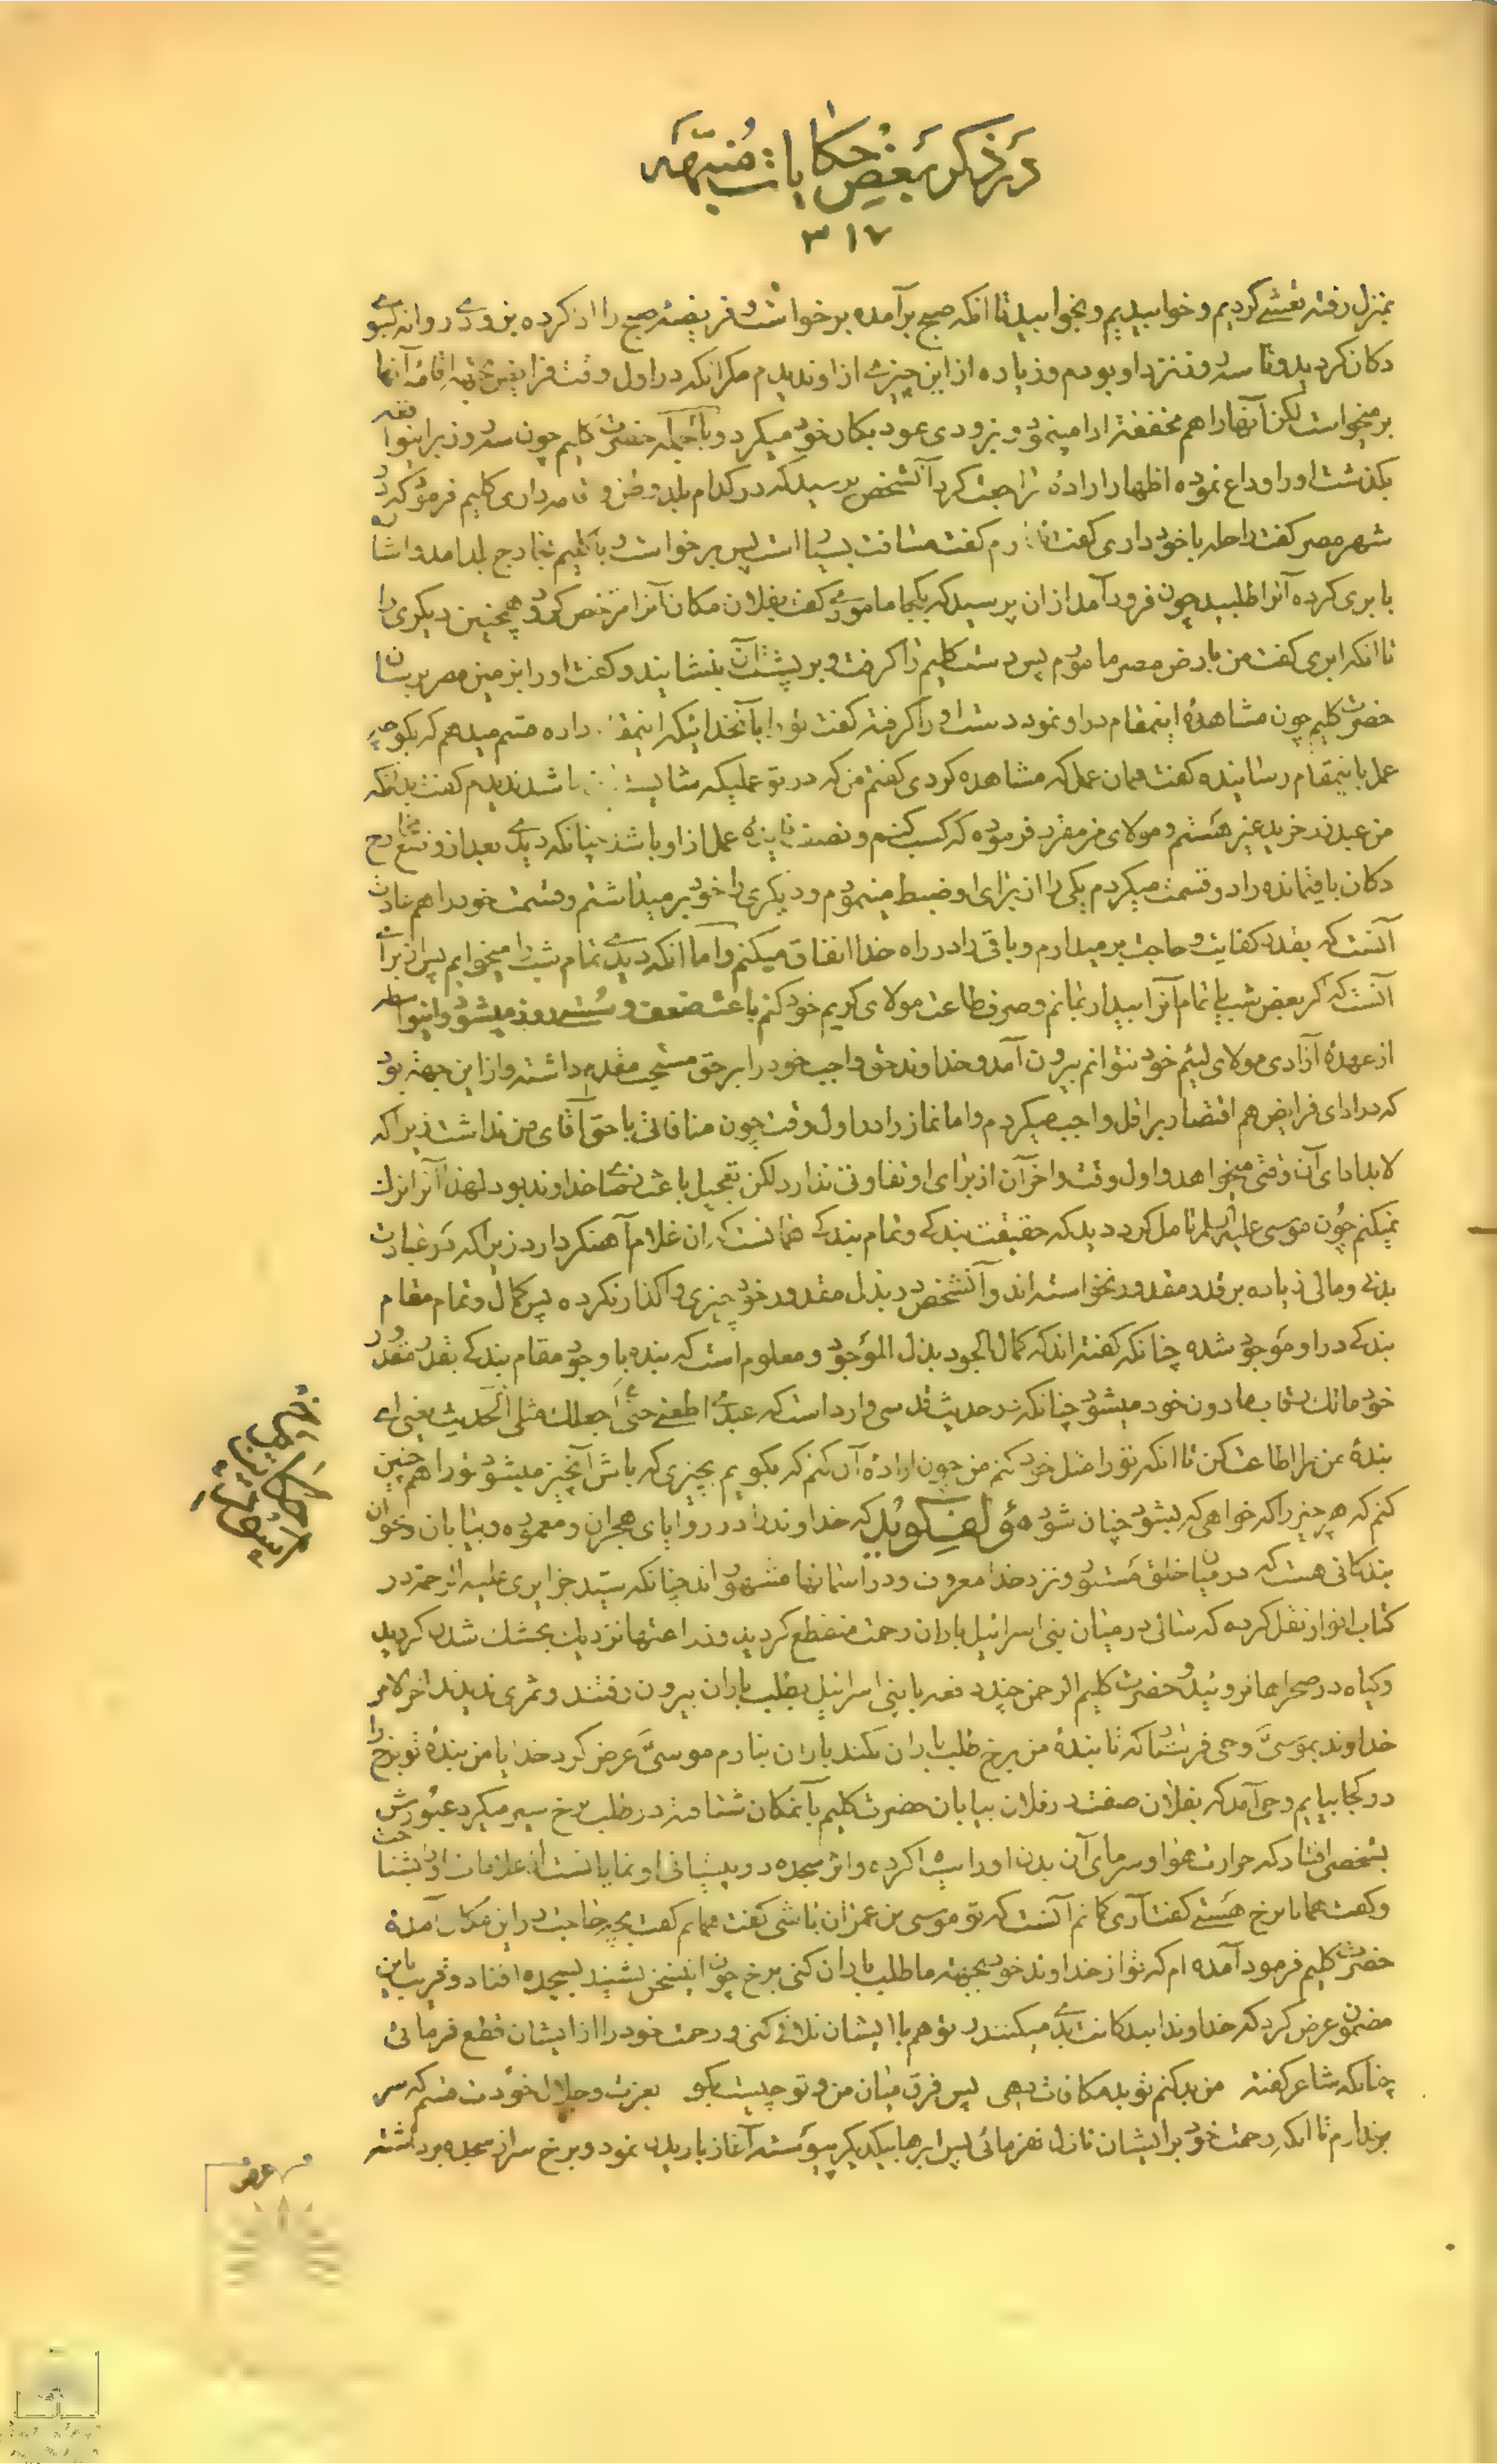 در ذکر بعض حکایات منبهه
۳۱۷
بمنزل رفته تعشی کردیم و خوابیدیم و بخوابید تا انکه صبح برآمده برخواست و فریضهٔ صبح را ادا کرده بزودی روانه بسوی
دکان گردید و تا سه روز نزد او بودم و زیاده از این چیزی از او ندیدم مگر انکه در اول وقت فرایض بجهة اقامهٔ آنها
برمیخواست لکن آنها را هم مخففة ادا مینمود و بزودی عود بکار خود میکرد و بالجمله حضرت کلیم چون سه روز براینواقعه
بگذشت او را وداع نموده اظهار ارادهٔ مراجعت کرد آنشخص پرسید که در کدام بلد وطن و داری کلیم فرمود که در
شهر مصر گفت راحله با خود داری گفت ندارم گفت مسافت بسیار است پس برخواست و با کلیم بخارج بلد آمد و اشاره
بابری کرده آنرا طلبید چون فرود آمد از ان پرسید که بکجا ماموری گفت بفلان مکان آنرا مرخص کرد و همچنین دیگری را
تا انکه ابری گفت من بارض مصر مامورم پس دست کلیم را گرفت و بر پشت آن بنشانید و گفت او را بزمین مصر برسان
حضرت کلیم چون مشاهدهٔ اینمقام در او نمود دست او را گرفته گفت تو را بآنخدائیکه اینمقام داده قسم میدهم که بگو چه
عمل باینمقام رسانیده گفت همان عمل که مشاهده کردی گفتم من که در تو عملیکه شایسته باشد ندیدم گفت بدانکه
من عبد زر خرید غیر هستم و مولای من مقرر فرموده که کسب کنم و نصف عمل از او باشد چنانکه دیدی بعد از وضع مخارج
دکان باقیمانده را دو قسمت میکردم یکی را از برای او ضبط مینمودم و دیگری را خود برمیداشتم و قسمت خود را هم عادت
آنست که بقدر کفایت و حاجت برمیدارم و باقی را در راه خدا انفاق میکنم و اما انکه دیدی تمام شب را میخوابم پس از برای
آنست که اگر بعض شب یا تمام آنرا بیدار بمانم و صرف طاعت مولای کریم خود کنم باعث ضعف و سستی روز میشود و اینواسطه
از عهدهٔ آزادی مولای لئیم خود نتوانم بیرون آمد و خداوند حق واجب خود را بر حق مستحب مقدم داشته و از این جهة بود
که در ادای فرایض هم اقتصار بر اقل واجب میکردم و اما نماز را در اول وقت چون منافاتی با حق آقای من نداشت زیرا که
لابد ادای آن وقتی میخواهد و اول وقت و اخر آن از برای او تفاوتی ندارد لکن تعجیل باعث رضای خداوند بود لهذا آنرا ترک
نمیکنم چون موسی علیه السلام تامل کرد دید که حقیقت بندگی و تمام بندگی همانست که ان غلام آهنگر دارد زیرا که در عبادت
بدنی و مالی زیاده بر قدر مقدور نخواسته اند و آنشخص در بذل مقدور خود چیزی واگذار نکرده پس کمال و تمام مقام
بندگی در او موجود شده چنانکه گفته اند که کمال الجود بذل الموجود و معلوم است که بنده با وجود مقام بندگی بقدر مقدور
خود مالک رقاب مادون خود میشود چنانکه در حدیث قدسی وارد است که عبدی اطعنی حتی اجعلک مثلی الحدیث یعنی ای
بندهٔ من مرا اطاعت کن تا انکه تو را مثل خود کنم من چون ارادهٔ آن کنم که بگویم بچیزی که باش آنچیز میشود تو را هم چنین
کنم که هر چیز را که خواهی که بشود چنان شود مؤلف گوید که خداوند را در زوایای هجران و معموره و بیابان و خوان
بندگانی هست که در میان خلق مستور و نزد خدا معروف و در آسمانها مشهورند چنانکه سید جزایری علیه الرحمه در
کتاب انوار نقل کرده که سالی در میان بنی اسرائیل باران رحمت منقطع گردید و زراعتها نزدیک بخشک شدن گردید
و گیاه در صحراها نروئید و حضرت کلیم الرحمن چند دفعه با بنی اسرائیل بطلب باران بیرون رفتند و ثمری ندیدند اخر الامر
خداوند بموسی وحی فرستاد که تا بندهٔ من برخ طلب باران نکند باران نبارم موسی عرض کرد خدایا من بندهٔ تو برخ را
در کجا بیابم وحی آمد که بفلان صفت در فلان بیابان حضرت کلیم بآنمکان شتافته در طلب برخ سیر میکرد عبورش
بشخصی افتاد که حرارت هوا و سرمای آن بدن او را سیاه کرده و اثر سجده در پیشانی او نمایانست از علامات او را بشناخت
و گفت همانا برخ هستی گفت آری گمانم آنست که تو موسی بن عمران باشی گفت همانم گفت بچه حاجت در این مکان آمدهٔ
حضرت کلیم فرمود آمده ام که تو از خداوند خود بجهة ما طلب باران کنی برخ چون اینسخن بشنید بسجده افتاد و قریب باین
مضمون عرض کرد که خداوندا بندگانت بدی میکنند تو هم با ایشان تلافی کنی و رحمت خود را از ایشان قطع فرمائی
چنانکه شاعر گفته من بد کنم تو بد مکافات دهی پس فرق میان من و تو چیست بگو بعزت و جلال خودت قسم که سر
برندارم تا انکه رحمت خود بر ایشان نازل نفرمائی پس ابرها بیکدیگر پیوسته آغاز باریدن نمود و برخ سر از سجده برداشته
عرض